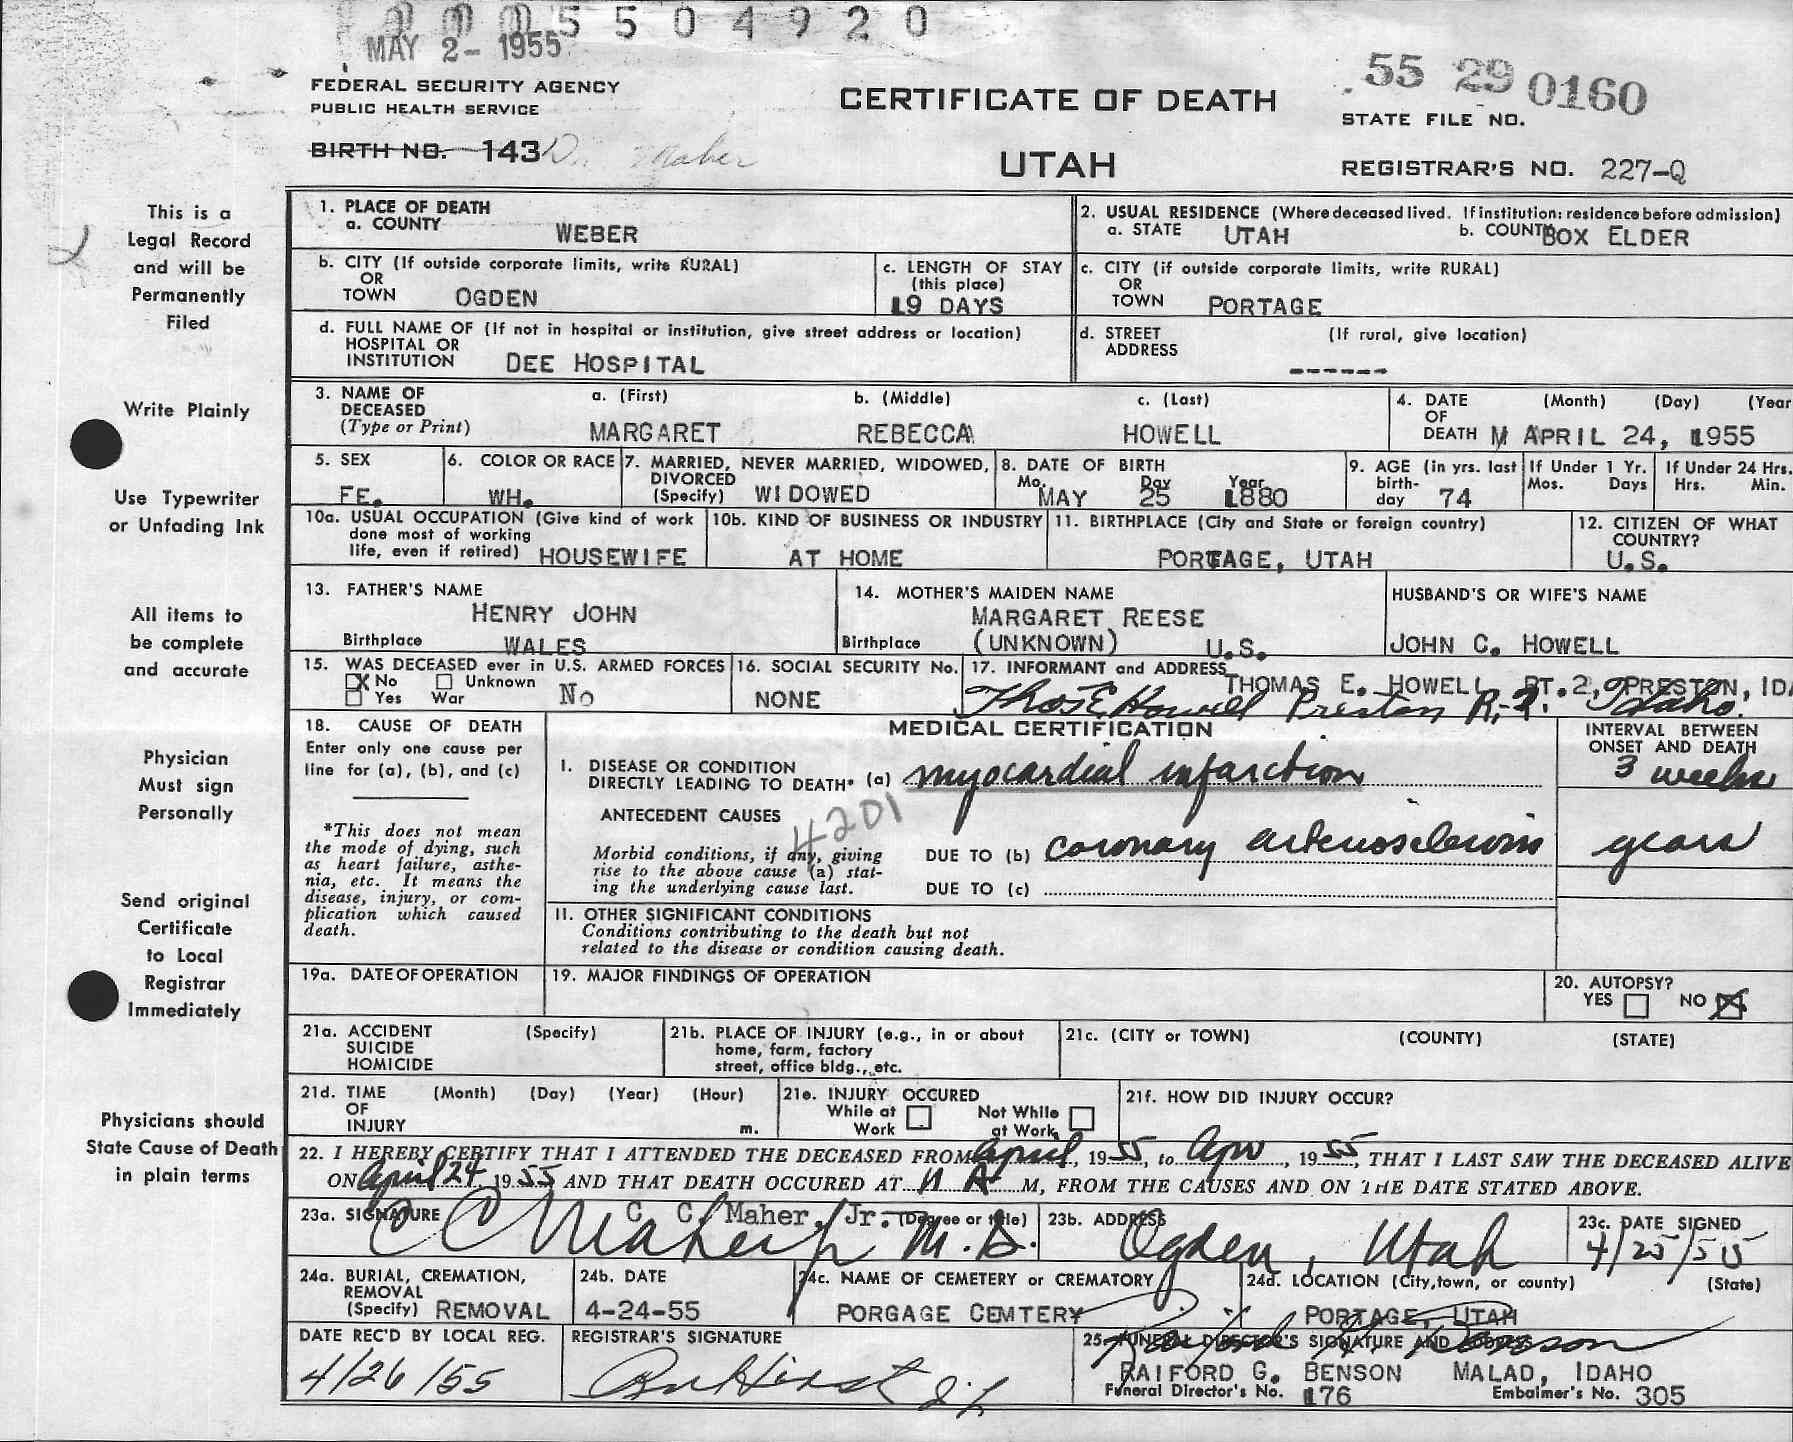 5504920
MAY 2- 1955
FEDERAL SECURITY AGENCY
PUBLIC HEALTH SERVICE
BIRTH NO. 143 Dr. Maher
CERTIFICATE OF DEATH
UTAH
55 29 0160
STATE FILE NO.
REGISTRAR'S NO. 227-Q
This is a
Legal Record
and will be
Permanently
Filed
Write Plainly
Use Typewriter
or Unfading Ink
All items to
be complete
and accurate
Physician
Must sign
Personally
Send original
Certificate
to Local
Registrar
Immediately
Physicians should
State Cause of Death
in plain terms
1. PLACE OF DEATH
a. COUNTY WEBER
2. USUAL RESIDENCE (Where deceased lived. If institution: residence before admission)
a. STATE UTAH b. COUNTY BOX ELDER
b. CITY (If outside corporate limits, write RURAL)
OR
TOWN OGDEN
c. LENGTH OF STAY
(this place)
19 DAYS
c. CITY (if outside corporate limits, write RURAL)
OR
TOWN PORTAGE
d. FULL NAME OF (If not in hospital or institution, give street address or location)
HOSPITAL OR
INSTITUTION DEE HOSPITAL
d. STREET (If rural, give location)
ADDRESS
------
3. NAME OF a. (First) b. (Middle) c. (Last)
DECEASED
(Type or Print) MARGARET REBECCA HOWELL
4. DATE (Month) (Day) (Year
OF
DEATH M APRIL 24, 1955
5. SEX
FE.
6. COLOR OR RACE
WH.
7. MARRIED, NEVER MARRIED, WIDOWED,
DIVORCED
(Specify) WIDOWED
8. DATE OF BIRTH
Mo. Day Year
MAY 25 1880
9. AGE (in yrs. last
birth-
day 74
If Under 1 Yr.
Mos. Days
If Under 24 Hrs.
Hrs. Min.
10a. USUAL OCCUPATION (Give kind of work
done most of working
life, even if retired) HOUSEWIFE
10b. KIND OF BUSINESS OR INDUSTRY
AT HOME
11. BIRTHPLACE (City and State or foreign country)
PORTAGE, UTAH
12. CITIZEN OF WHAT
COUNTRY?
U.S.
13. FATHER'S NAME
HENRY JOHN
Birthplace WALES
14. MOTHER'S MAIDEN NAME
MARGARET REESE
Birthplace (UNKNOWN) U.S.
HUSBAND'S OR WIFE'S NAME
JOHN C. HOWELL
15. WAS DECEASED ever in U.S. ARMED FORCES
X No Unknown
Yes War No
16. SOCIAL SECURITY No.
NONE
17. INFORMANT and ADDRESS
THOMAS E. HOWELL RT. 2, PRESTON, IDA
Thos E Howell Preston R. 2. Idaho.
18. CAUSE OF DEATH
Enter only one cause per
line for (a), (b), and (c)
*This does not mean
the mode of dying, such
as heart failure, asthe-
nia, etc. It means the
disease, injury, or com-
plication which caused
death.
MEDICAL CERTIFICATION
INTERVAL BETWEEN
ONSET AND DEATH
I. DISEASE OR CONDITION
DIRECTLY LEADING TO DEATH* (a) myocardial infarction 3 weeks
ANTECEDENT CAUSES
4201
Morbid conditions, if any, giving
rise to the above cause (a) stat-
ing the underlying cause last.
DUE TO (b) coronary arteriosclerosis years
DUE TO (c)
II. OTHER SIGNIFICANT CONDITIONS
Conditions contributing to the death but not
related to the disease or condition causing death.
19a. DATE OF OPERATION
19. MAJOR FINDINGS OF OPERATION
20. AUTOPSY?
YES NO X
21a. ACCIDENT (Specify)
SUICIDE
HOMICIDE
21b. PLACE OF INJURY (e.g., in or about
home, farm, factory
street, office bldg., etc.
21c. (CITY or TOWN) (COUNTY) (STATE)
21d. TIME (Month) (Day) (Year) (Hour)
OF
INJURY m.
21e. INJURY OCCURED
While at Not While
Work at Work
21f. HOW DID INJURY OCCUR?
22. I HEREBY CERTIFY THAT I ATTENDED THE DECEASED FROM April, 1955, to Apr, 1955, THAT I LAST SAW THE DECEASED ALIVE
ON April 24, 1955 AND THAT DEATH OCCURED AT 11 A M, FROM THE CAUSES AND ON THE DATE STATED ABOVE.
23a. SIGNATURE C. C. Maher, Jr. (Degree or title)
C C Maher Jr M.D.
23b. ADDRESS
Ogden, Utah
23c. DATE SIGNED
4/25/55
24a. BURIAL, CREMATION,
REMOVAL
(Specify) REMOVAL
24b. DATE
4-24-55
24c. NAME OF CEMETERY or CREMATORY
PORGAGE CEMTERY
24d. LOCATION (City, town, or county) (State)
PORTAGE, UTAH
DATE REC'D BY LOCAL REG.
4/26/55
REGISTRAR'S SIGNATURE
25. FUNERAL DIRECTOR'S SIGNATURE AND ADDRESS
Raiford G. Benson
RAIFORD G. BENSON MALAD, IDAHO
Funeral Director's No. 176 Embalmer's No. 305